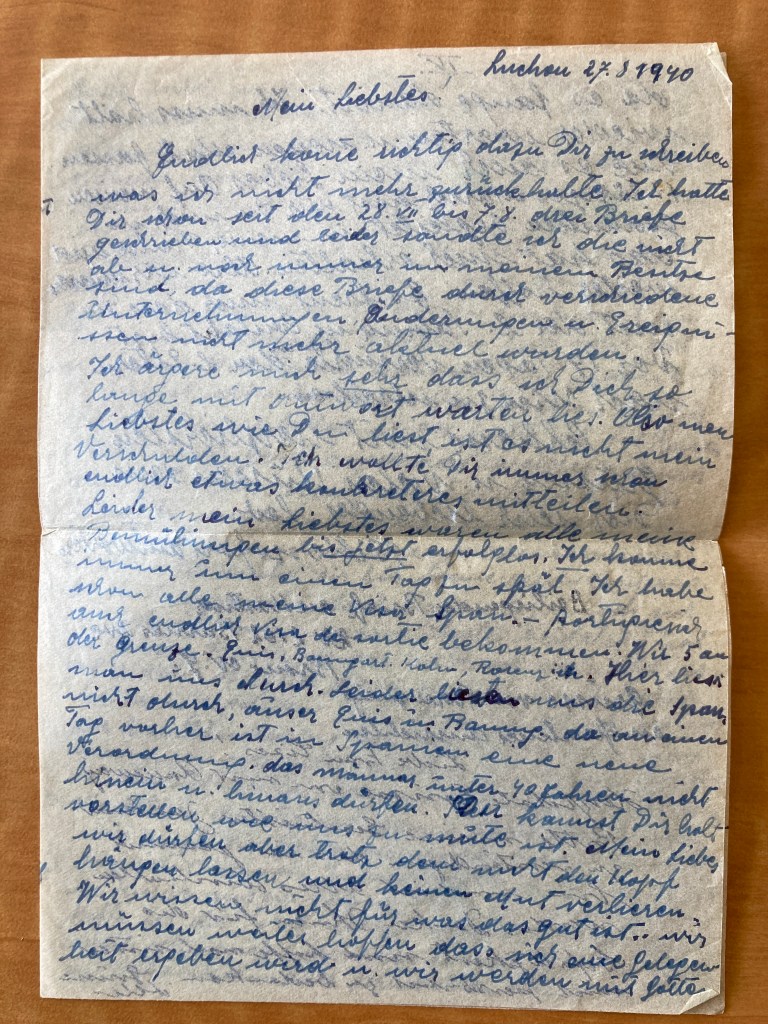 Luchon 27.8 1940
Mein Liebstes
Endlich kome richtig dazu Dir zu schreiben
was ich nicht mehr zurückhalte. Ich hatte
Dir schon seit den 28. VII bis 7.8. drei Briefe
geschrieben und leider sandte ich die nicht
ab u. noch immer in meinem Besitze
sind da diese Briefe durch verschiedene
Unternehmungen Änderungen u. Ereignis-
ssen nicht mehr aktuel wurden.
Ich ärgere mich sehr dass ich Dich so
lange mit Antwort warten lies. Also mein
Liebstes wie Du liest ist es nicht mein
Verschulden. Ich wollte Dir immer schon
endlich etwas konkreteres mitteilen.
Leider mein Liebstes waren alle meine
Bemühungen bis jetzt erfolglos. Ich komme
immer um einen Tag zu spät. Ich habe
schon alle meine Visa Span. - Portugiesisch
auch endlich Visa de sortie bekommen. Wir 5 an
der Grenze. Baumgart. Kohn, Hier liess
man uns durch. Leider liessen uns die Span.
nicht durch, auser in Baumg. da an einen
Tag vorher ist in Spanien eine neue
Verordnung. das männer unter 40 Jahren nicht
hinein u. hinaus dürfen. kannst Dir halt
vorstellen wie uns zu mute ist. Mein Liebes
wir dürfen aber trotz dem nicht den Kopf
hängen lassen und keinen Mut verlieren.
Wir wissen nicht für was das gut ist.. wir
müssen weiter hoffen dass sich eine gelegen-
heit ergeben wird u. wir werden mit Gottes